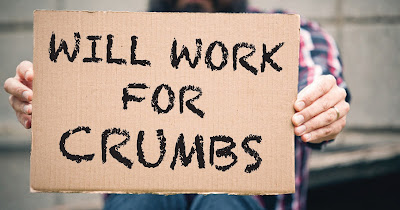 WILL WORK
FOR
CRUMBS